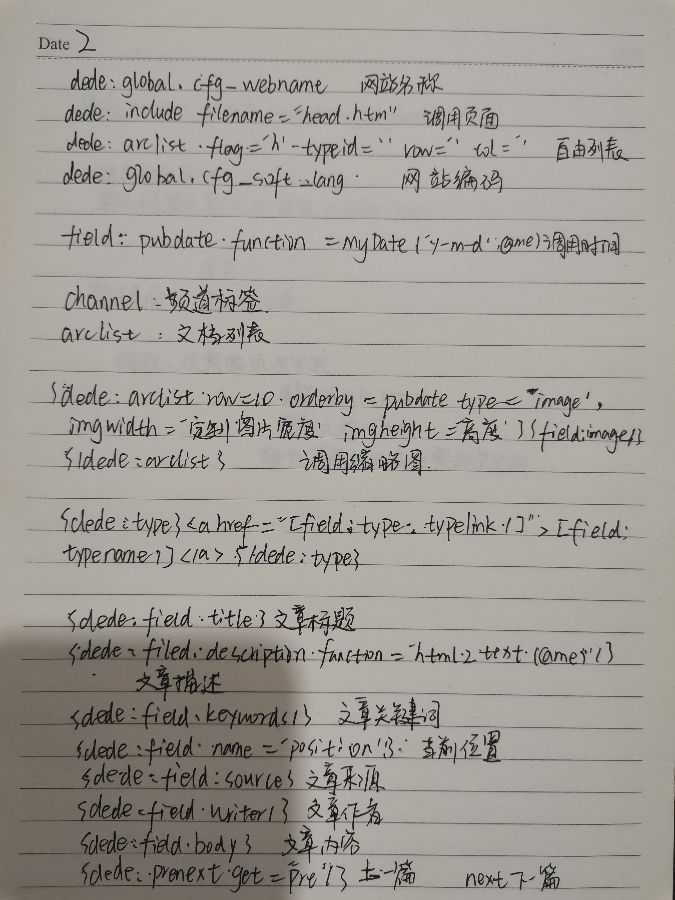 Date 2
dede: global. cfg_webname 网站名称
dede: include filename="head.htm" 调用页面
dede: arclist flag='h' typeid='' row='' col='' 自由列表
dede: global. cfg_soft_lang 网站编码
field: pubdate function=MyDate('y-m-d',@me) 调用时间
channel: 频道标签
arclist: 文档列表
{dede: arclist row=10 orderby=pubdate type='image',
imgwidth='定制图片宽度' imgheight='高度'}{field:image/}
{/dede:arclist} 调用缩略图.
{dede:type}<a href="[field:type. typelink /]">[field:
typename/]</a>{/dede:type}
{dede:field.title} 文章标题
{dede:filed.description function='html2text(@me)'/}
文章描述
{dede:field.keywords/} 文章关键词
{dede:field name='position'} 当前位置
{dede:field:source} 文章来源
{dede:field.writer/} 文章作者
{dede:field.body} 文章内容
{dede:prenext get='pre'/} 上一篇 next 下一篇